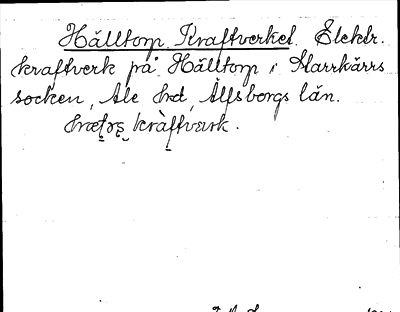 Hälltorp Kraftverket. Elektr.
kraftverk på Hälltorp i Starrkärrs
socken, Ale hd, Älfsborgs län.
kràftværk.